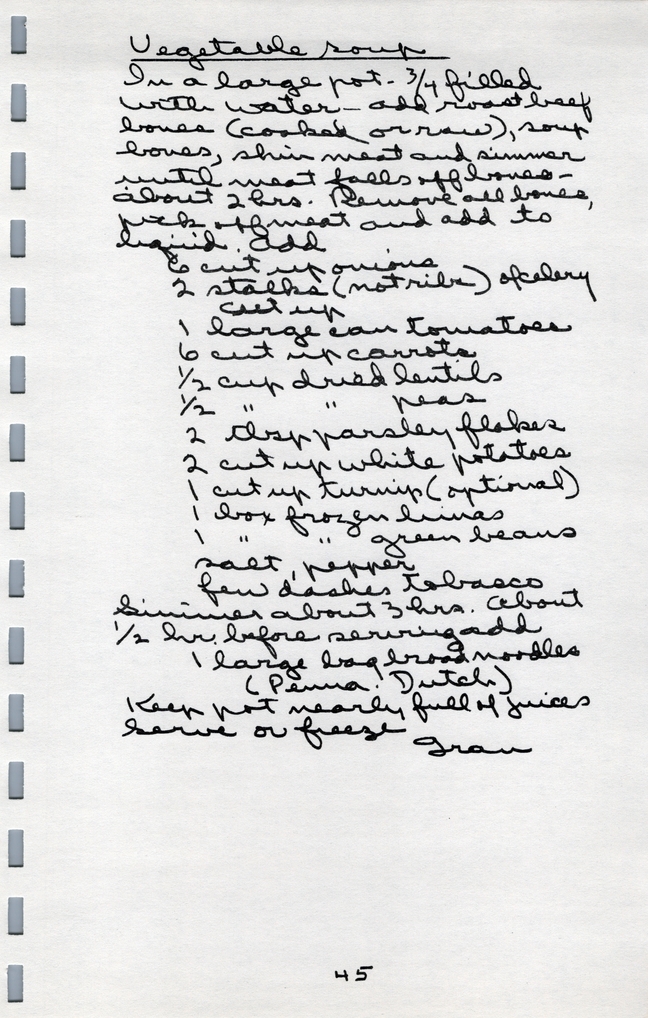 Vegetable soup
In a large pot - 3/4 filled
with water - add roast beef
bones (cooked or raw), soup
bones, shin meat and simmer
until meat falls off bones -
about 2 hrs. Remove all bones,
pick off meat and add to
liquid. Add
6 cut up onions
2 stalks (not ribs) of celery
cut up
1 large can tomatoes
6 cut up carrots
1/2 cup dried lentils
1/2 " " peas
2 tbsp parsley flakes
2 cut up white potatoes
1 cut up turnip (optional)
1 box frozen limas
1 " " green beans
salt, pepper
few dashes tobasco
Simmer about 3 hrs. About
1/2 hr. before serving add
1 large bag broad noodles
(Penna. Dutch)
Keep pot nearly full of juices
serve or freeze
Gran
45